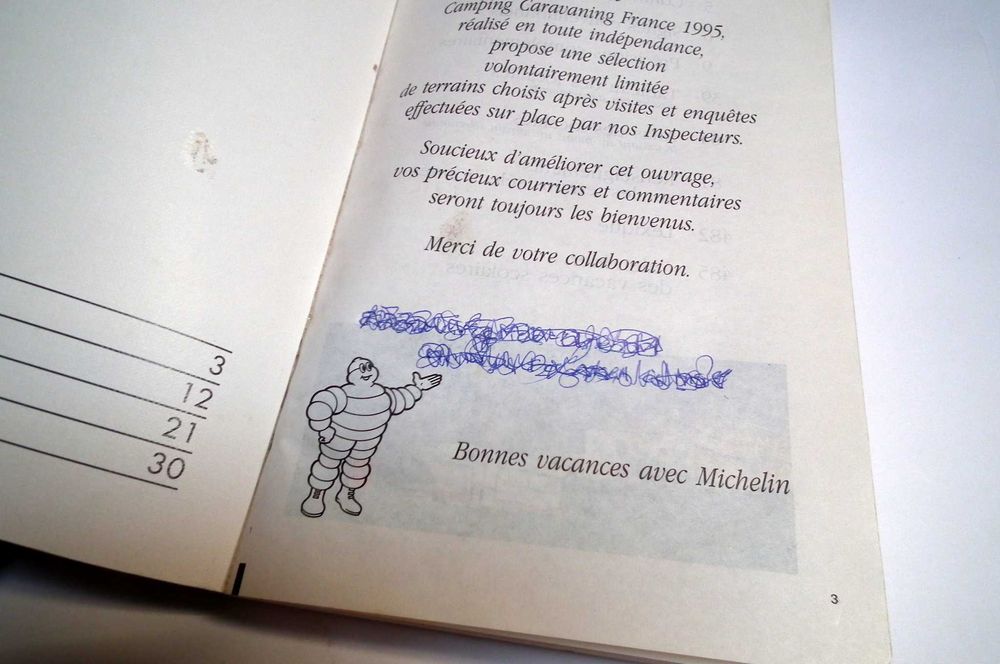 3
12
21
30
Camping Caravaning France 1995,
réalisé en toute indépendance,
propose une sélection
volontairement limitée
de terrains choisis après visites et enquêtes
effectuées sur place par nos Inspecteurs.
Soucieux d'améliorer cet ouvrage,
vos précieux courriers et commentaires
seront toujours les bienvenus.
Merci de votre collaboration.
Bonnes vacances avec Michelin
3